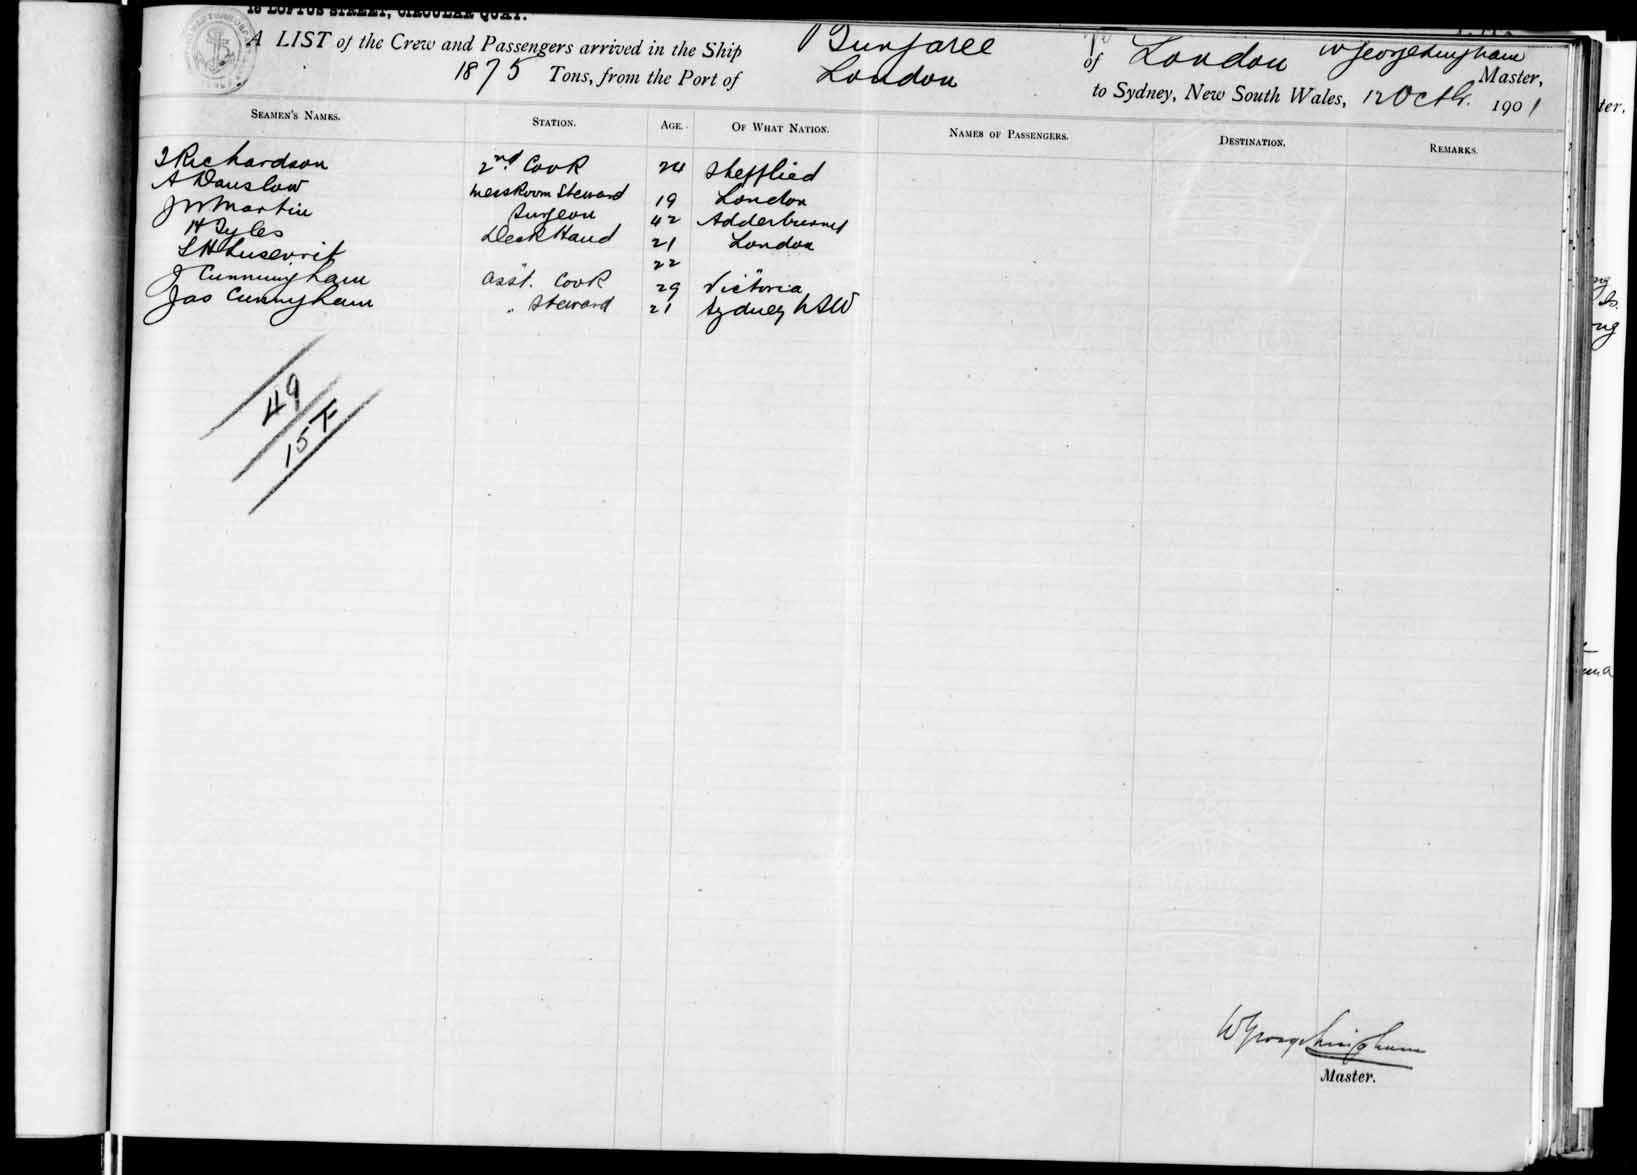 15 LOFTUS STREET, CIRCULAR QUAY.
A LIST of the Crew and Passengers arrived in the Ship Bungaree of London W George Master,
1875 Tons, from the Port of London to Sydney, New South Wales, 12 Octr. 1901
SEAMEN'S NAMES. STATION. AGE. OF WHAT NATION. NAMES OF PASSENGERS. DESTINATION. REMARKS.
Richardson 2nd Cook 24 Shefflied
A Danslow Messroom Steward 19 London
J W Martin Surgeon 42
H Syles Deck Hand 21 London
S H " 22 "
J Cunningham Asst. Cook 29 Victoria
Jas Cunningham " Steward 21 Sydney NSW
49
15 F
W George
Master.
ter.